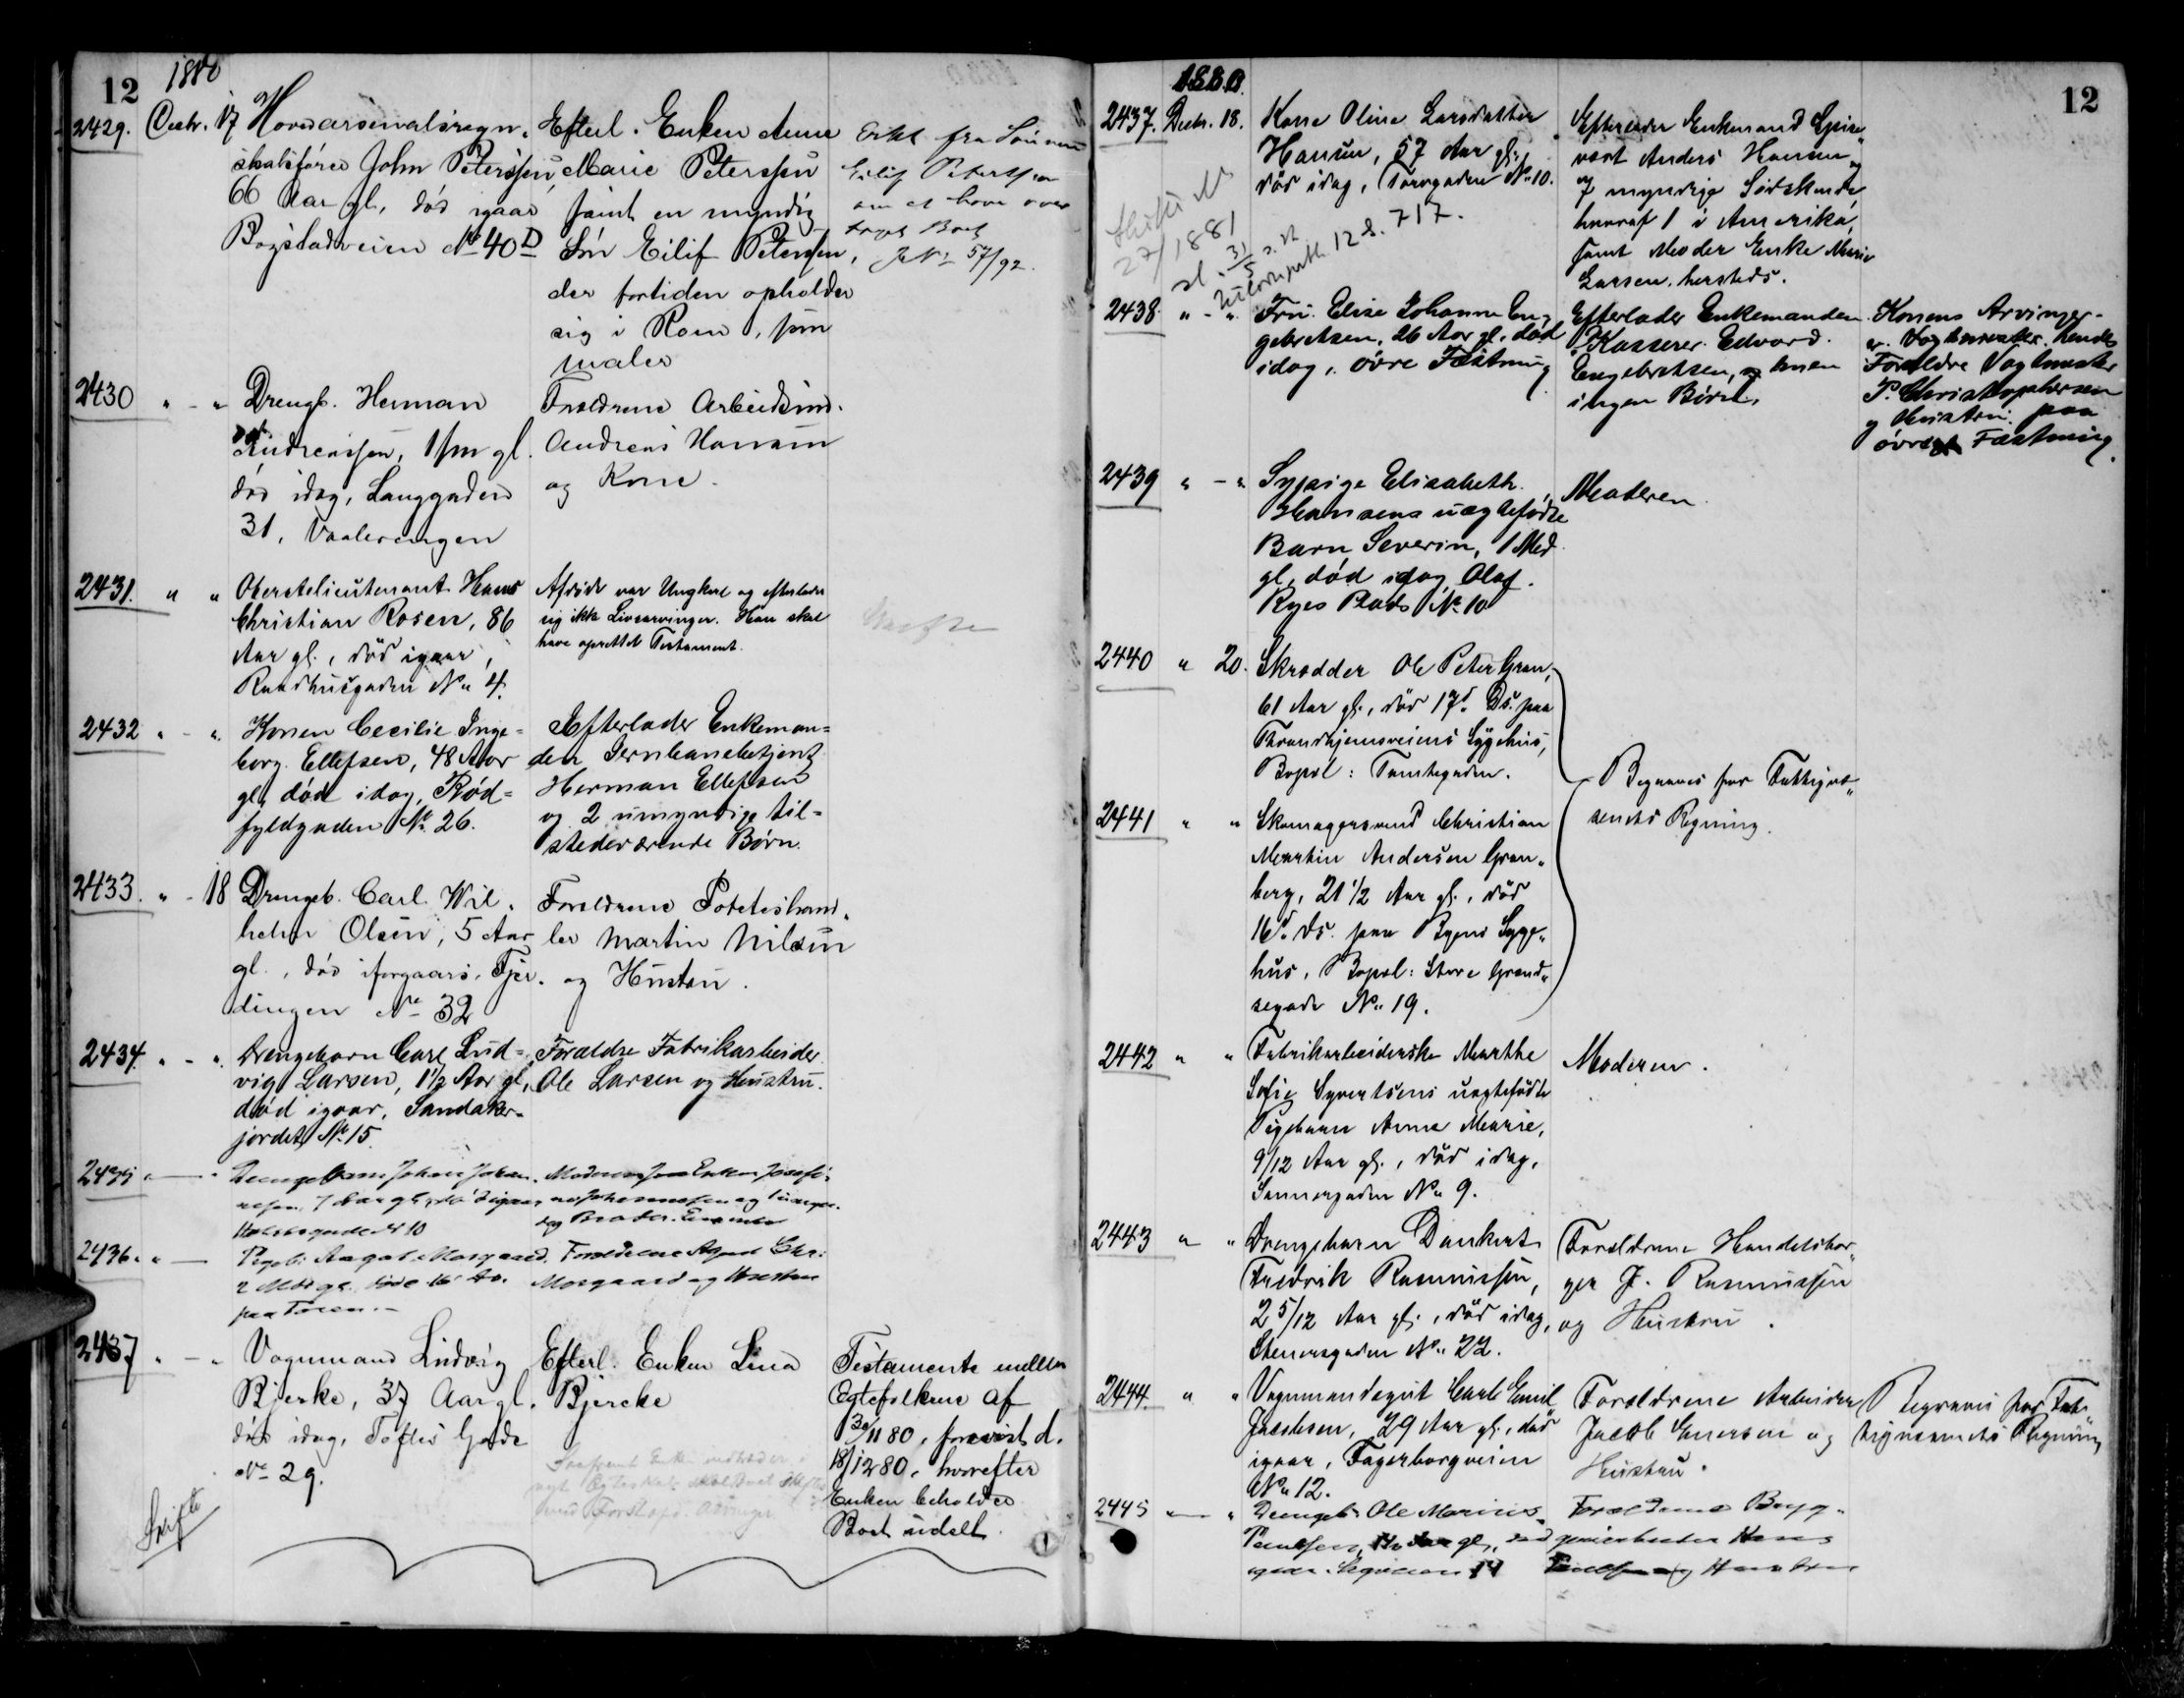 12
1880
2429. Decbr. 17 Hovedarsenalsregn-
skabsfører John Peterssen,
66 Aar gl., død igaar
Bogstadveien No 40 D
Efterl. Enken Anne
Marie Peterssen
samt en myndig
Søn Eilif Peterssen,
der fortiden opholder
sig i Rom, som
maler
Erkl. fra Sønnen
Eilif Peterssen
om at have over
taget Boet
J No 57/92.
2430 " - " Drengb. Herman
Andreassen, 1/m gl.
død idag, Langgaden
31, Vaalerengen
Forældrene Arbeidsmd.
Andreas Hansen
og Kone.
2431. " " Oberstelieutenant Hans
Christian Rosen, 86
Aar gl., død igaar,
Raadhusgaden No 4.
Afdøde var Ungkarl og efterlader
sig ikke Livsarvinger. Han skal
have oprettet Testament.
2432 " - " Konen Cecilie Inge-
borg Ellefsen, 48 Aar
gl, død idag, Rød-
fyldgaden No 26.
Efterlader Enkeman-
den Jernbanebetjent
Herman Ellefsen
og 2 umyndige til-
stedeværende Børn.
2433. " - 18 Drengeb. Carl Wil-
helm Olsen, 5 Aar
gl., død iforgaars, Fjer-
dingen No 32
Forældrene Poteteshand-
ler Martin Nilsen
og Hustru.
2434. " - " Drengebarn Carl Lud-
vig Larsen, 1 1/2 Aar gl,
død igaar, Sandaker-
jordet No 15
Forældre Fabrikarbeider
Ole Larsen og Hustru.
2435 " — " Drengebarn Johan Johan-
nesen, 7 Aar gl, død igaar
No 10
Moderen Enken Josefi-
ne Johannessen og 1 umyn-
dig Broder.
2436. " — Pigeb. Aagot Morgaard,
2 Mdr gl. død 16 ds.
paa Tøien.-
Forældrene Agent Chr.
Morgaard og Hustru
2437 " - " Vognmand Ludvig
Bjerke, 37 Aar gl.
død idag, Toftes Gade
No 29.
Efterl. Enken Lina
Bjercke
Testamente mellem
Egtefolkene af
30/11 80, forevist d.
18/12 80, hvorefter
Enken beholder
Boet udelt.
Skifte
12
1880.
2437. Decbr. 18. Kone Oline Larsdatter
Hansen, 57 Aar gl.,
død idag, Torvgaden No 10.
Efterlader Enkemand Spise-
vært Anders Hansen og
7 myndige Sødskende,
hvoraf 1 i Amerika,
samt Moder Enke Marie
Larsen, hersteds.
27/1881
sl. 31/5
12 S. 717.
2438. " - " Fru Elise Johanne En-
gebretsen, 26 Aar gl. død
idag, øvre Fæstning
Efterlader Enkemanden
Kasserer Edvard
Engebretsen, men
ingen Børn.
Konens Arvinger
er hendes
Forældre Vagtmester
P. Christophersen
og Hustru paa
øvre Fæstning.
2439 " - " Sypige Elisabeth
Hansens uægtefødte
Barn Severin, 1 Md
gl, død idag, Olaf
Ryes Plads No 10
Moderen
2440 " 20. Skrædder Ole Peter Gran,
61 Aar gl., død 17d. Ds. paa
Throndhjemsveiens Sygehus,
Bopæl: Tomtegaden.
2441 " " Skomagersvend Christian
Martin Andersen Gran-
berg, 21 1/2 Aar gl., død
16d. ds. paa Byens Syge-
hus, Bopæl: Store Grænd-
segade No 19.
Begraves for Fattigvæ-
senets Regning.
2442 " " Fabrikarbeiderske Marthe
Sofie Syvertsens uægtefødte
Pigebarn Anna Marie,
9/12 Aar gl., død idag,
Sannergaden No 9.
Moderen.
2443 " " Drengebarn Dankert
Fredrik Rasmussen,
2 5/12 Aar gl., død idag,
Stenersgaden No 22.
Forældrene Handelsbor-
ger J. Rasmussen
og Hustru.
2444. " " Vognmandsgut Carl Emil
Jacobsen, 29 Aar gl., død
igaar, Fagerborgveien
No 12.
Forældrene Arbeider
Jacob Enersen og
Hustru.
Begraves for Fat-
tigvæsenets Regning
2445 " — " Drengeb. Ole Marius
Paulsen, gl, død
igaar. 14
Forældrene Bryg-
geriarbeider Hans
Paulsen og Hustru